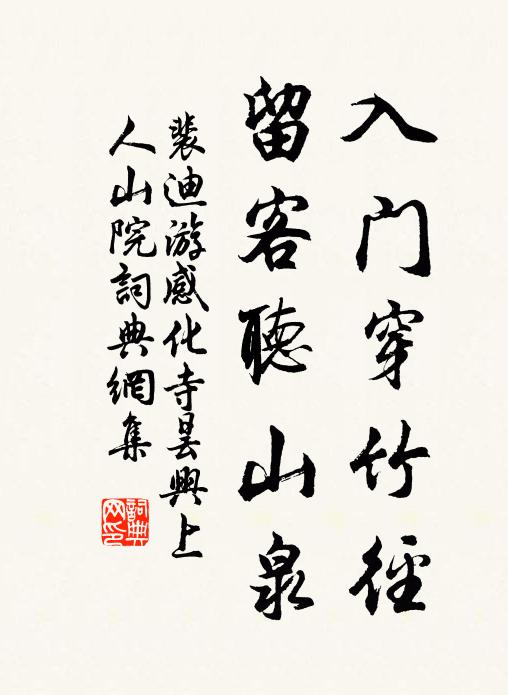 入门穿竹徑
留客聽山泉
裴迪游感化寺曇興上
人山院詞典網集
詞典
网印